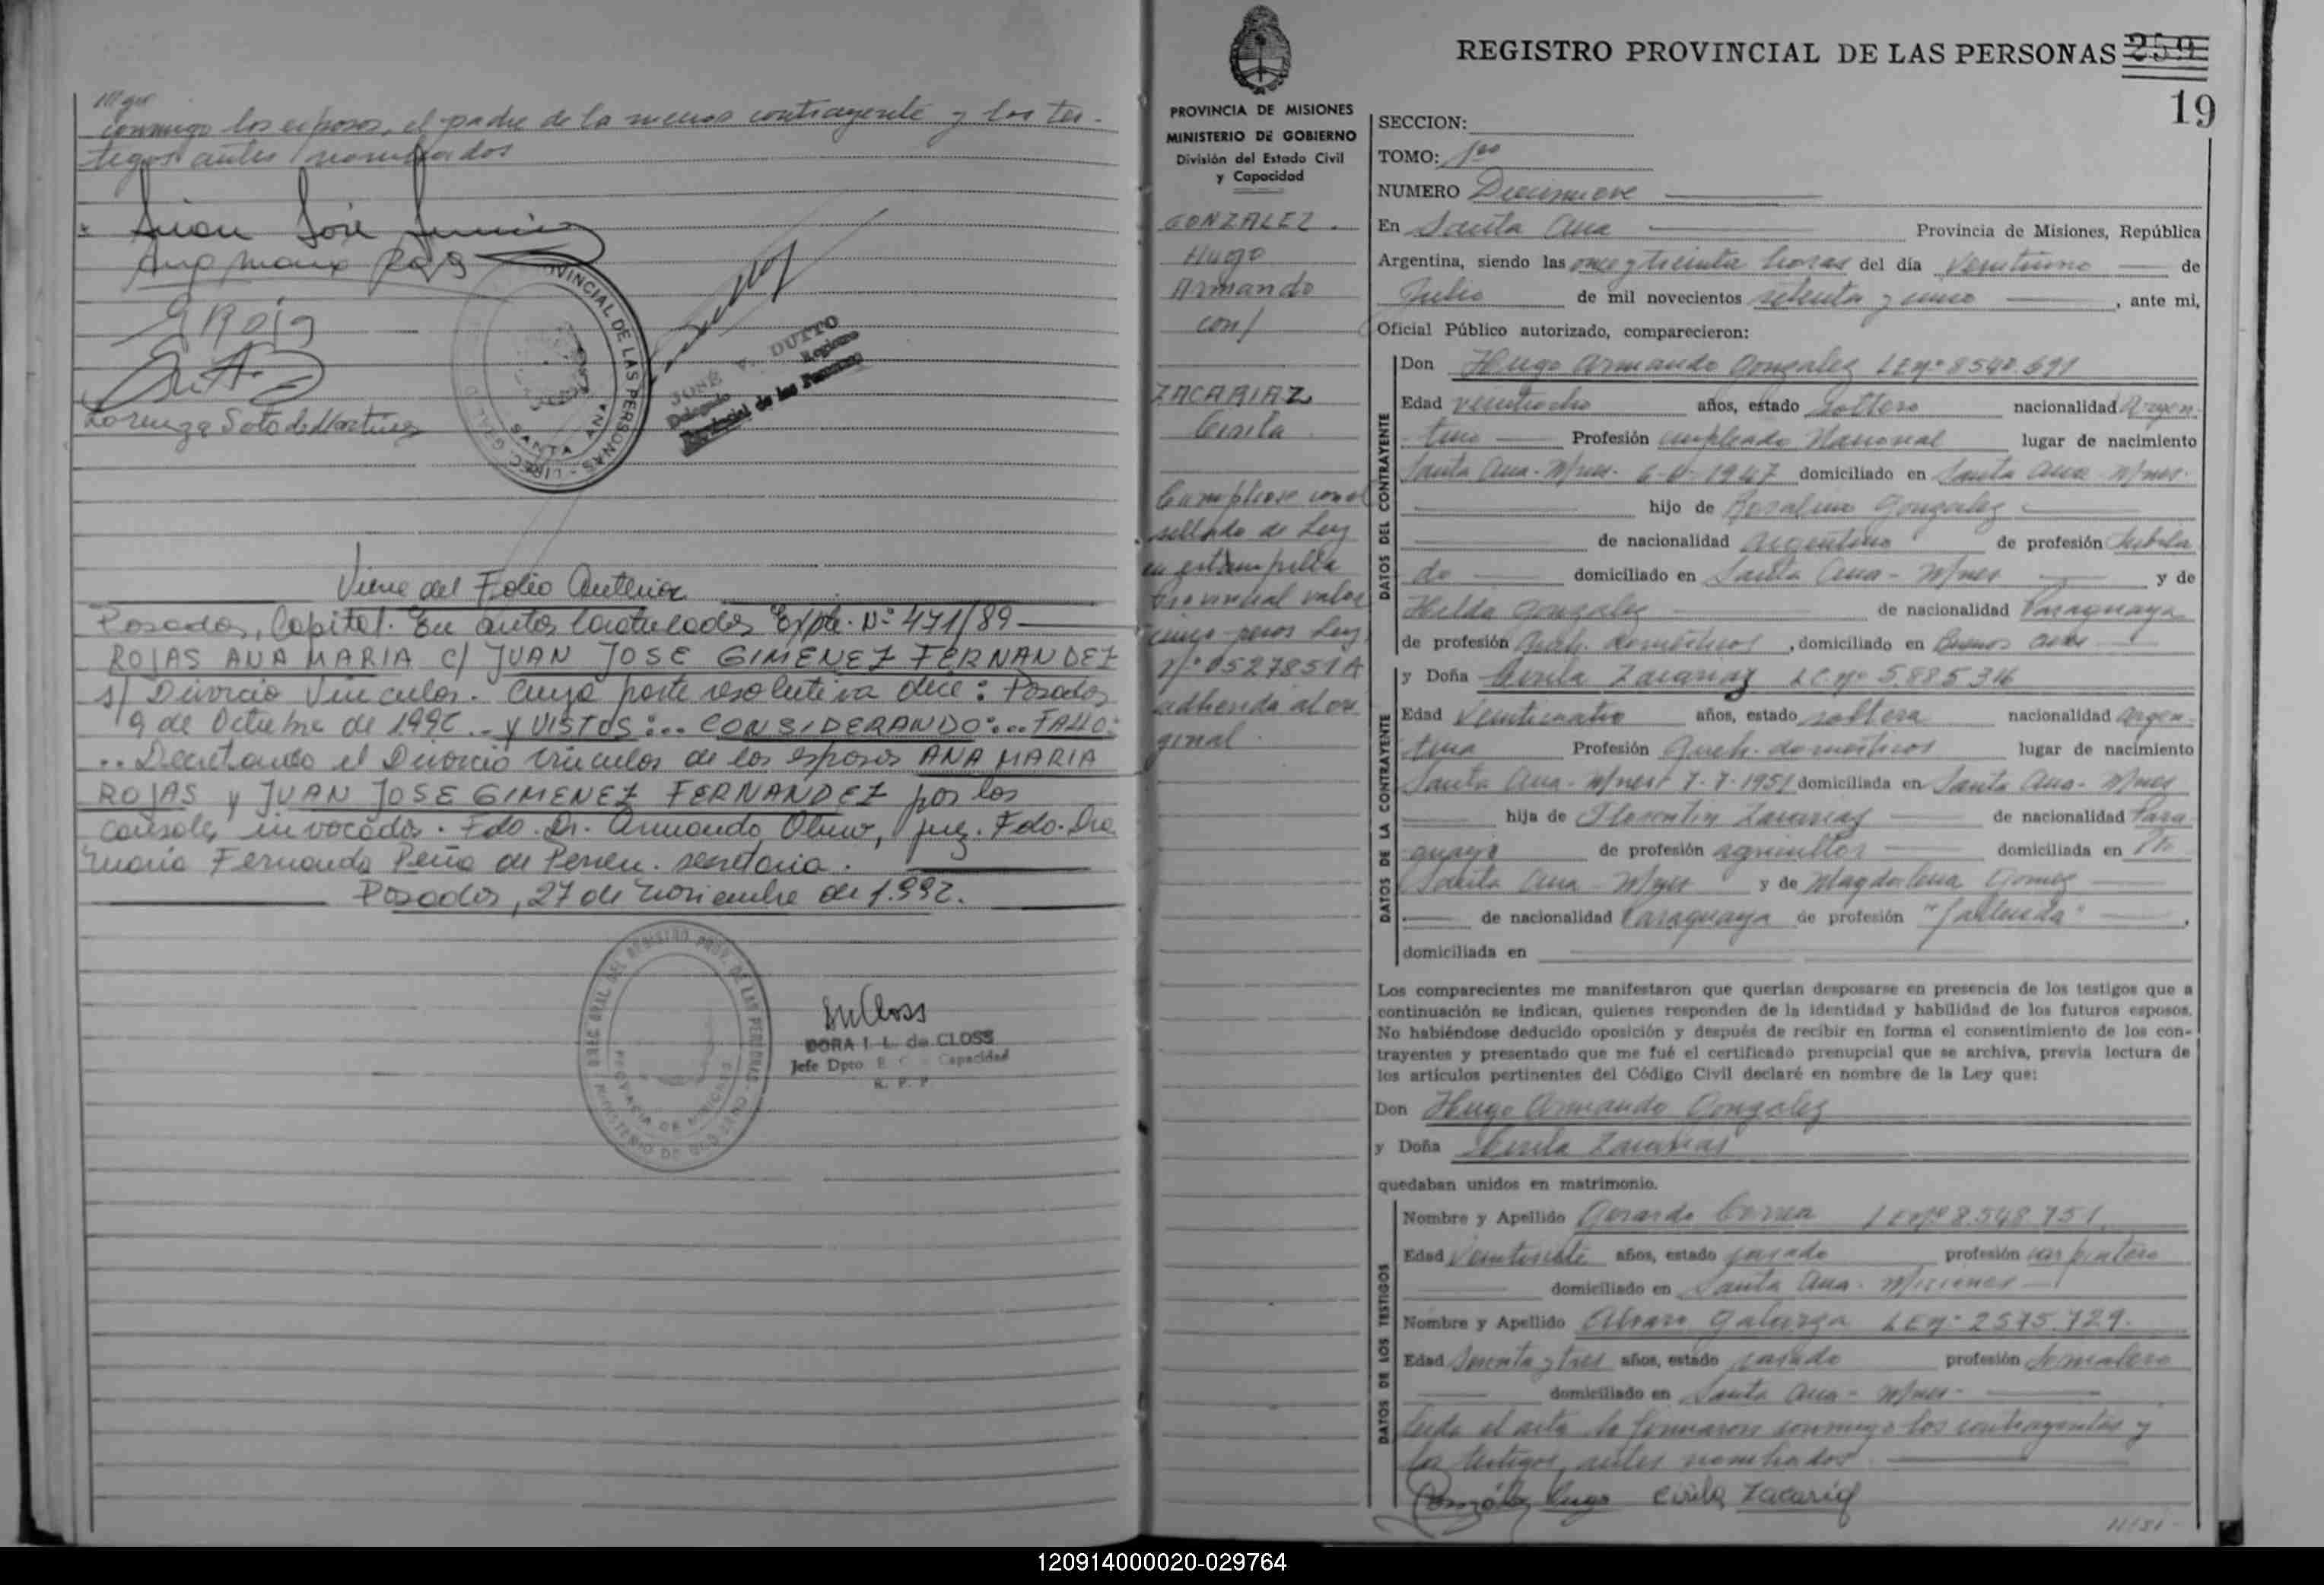 conmigo los esposos, el padre de la menor contrayente y los tes-
tigos antes nombrados
Juan José
G Roja
Lorenza Soto de Martinez
PROVINCIAL DE LAS PERSONAS
SANTA ANA
JOSÉ V. DUTTO
Delegado Registro
Provincial de las Personas
Viene del Folio Anterior
Posadas, Capital. En autos caratulados Expte. Nº 471/89
ROJAS ANA MARIA C/ JUAN JOSE GIMENEZ FERNANDEZ
s/ Divorcio Vincular. Cuya parte resolutiva dice: Posadas
9 de Octubre de 1992.. Y VISTOS:... CONSIDERANDO:... FALLO:
.. Decretando el Divorcio vincular de los esposos ANA MARIA
ROJAS y JUAN JOSE GIMENEZ FERNANDEZ por las
causales invocadas. Fdo. Dr. Armando juez. Fdo. Dra
María Fernanda Peña de secretaria.
Posadas, 27 de noviembre de 1.992.
DORA I. L. de CLOSS
Jefe Dpto E. C. Capacidad
R. P. P.
PROVINCIA DE MISIONES
MINISTERIO DE GOBIERNO
División del Estado Civil
y Capacidad
GONZALEZ.
Hugo
Armando
con/
ZACARIAZ
Cirila
Cumpliose con el
sellado de Ley
en estampilla
provincial valor
cinco pesos Ley
Nº 0527851A
adherida al ori
ginal.
REGISTRO PROVINCIAL DE LAS PERSONAS 259
19
SECCION:
TOMO: 1ro
NUMERO Diecinueve
En Santa Ana Provincia de Misiones, República
Argentina, siendo las once y treinta horas del día Veintiuno de
Julio de mil novecientos setenta y cinco, ante mi,
Oficial Público autorizado, comparecieron:
DATOS DEL CONTRAYENTE
Don Hugo Armando Gonzalez LE Nº 8540.691
Edad veintiocho años, estado soltero nacionalidad Argen-
tino Profesión empleado Nacional lugar de nacimiento
Santa Ana - M/nes - 1947 domiciliado en Santa Ana - M/nes.
hijo de Rosalino Gonzalez
de nacionalidad Argentino de profesión Jubila
do domiciliado en Santa Ana - M/nes y de
Hilda Gonzalez de nacionalidad Paraguaya
de profesión Queh. domésticos, domiciliado en Buenos Aires
DATOS DE LA CONTRAYENTE
y Doña Cirila Zacariaz LC. Nº 5.885.316
Edad Veinticuatro años, estado soltera nacionalidad Argen-
tina Profesión Queh. domésticos lugar de nacimiento
Santa Ana - M/nes 7-7-1951 domiciliada en Santa Ana - M/nes
hija de Florentin Zacarias de nacionalidad Para
guayo de profesión agricultor domiciliada en
Santa Ana - M/nes y de Magdalena Gomez
de nacionalidad Paraguaya de profesión "fallecida",
domiciliada en
Los comparecientes me manifestaron que querían desposarse en presencia de los testigos que a
continuación se indican, quienes responden de la identidad y habilidad de los futuros esposos.
No habiéndose deducido oposición y después de recibir en forma el consentimiento de los con-
trayentes y presentado que me fué el certificado prenupcial que se archiva, previa lectura de
los artículos pertinentes del Código Civil declaré en nombre de la Ley que:
Don Hugo Armando Gonzalez
y Doña Cirila Zacarias
quedaban unidos en matrimonio.
DATOS DE LOS TESTIGOS
Nombre y Apellido Gerardo Correa LE Nº 8.548.751
Edad Veintisiete años, estado casado profesión carpintero
domiciliado en Santa Ana - Misiones
Nombre y Apellido Alvaro Galarza LE Nº 2575.729.
Edad Sesenta y tres años, estado casado profesión Jornalero
domiciliado en Santa Ana - M/nes -
Leida el acta la firmaron conmigo los contrayentes y
los testigos, antes nombrados
González Hugo Cirila Zacaria
120914000020-029764